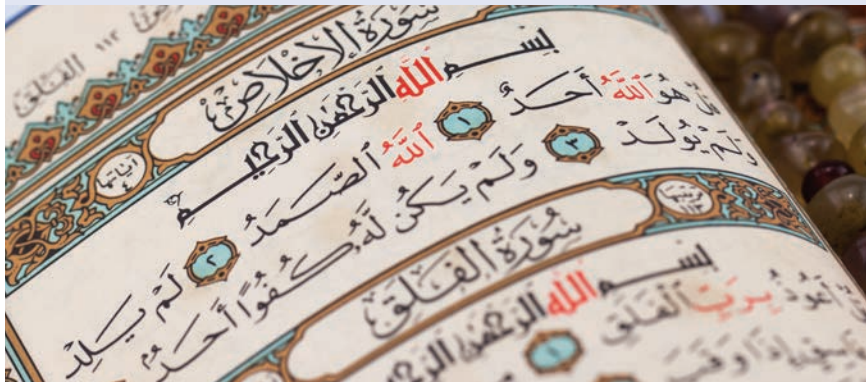 ١١٣ الفلق
سُورَةُ الإِخْلَاصِ
آيَاتُهَا ٤
بِسْمِ اللَّهِ الرَّحْمَٰنِ الرَّحِيمِ
قُلْ هُوَ اللَّهُ أَحَدٌ ١ اللَّهُ الصَّمَدُ ٢ لَمْ يَلِدْ
وَلَمْ يُولَدْ ٣ وَلَمْ يَكُن لَّهُ كُفُوًا أَحَدٌ
١١٣
سُورَةُ الفَلَقِ
بِسْمِ اللَّهِ الرَّحْمَٰنِ الرَّحِيمِ
أَعُوذُ بِرَبِّ الْفَلَقِ ١
إِذَا وَقَبَ